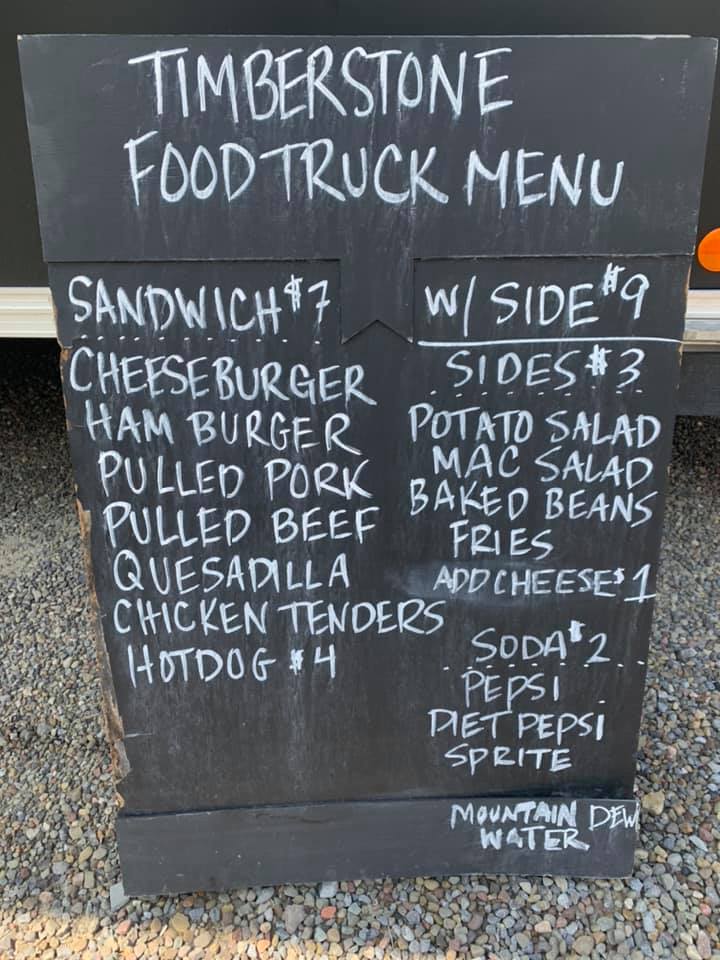 TIMBERSTONE
FOOD TRUCK MENU
SANDWICH $7
CHEESEBURGER
HAMBURGER
PULLED PORK
PULLED BEEF
QUESADILLA
CHICKEN TENDERS
HOTDOG $4
W/ SIDE $9
SIDES $3
POTATO SALAD
MAC SALAD
BAKED BEANS
FRIES
ADD CHEESE $1
SODA $2
PEPSI
DIET PEPSI
SPRITE
MOUNTAIN DEW
WATER